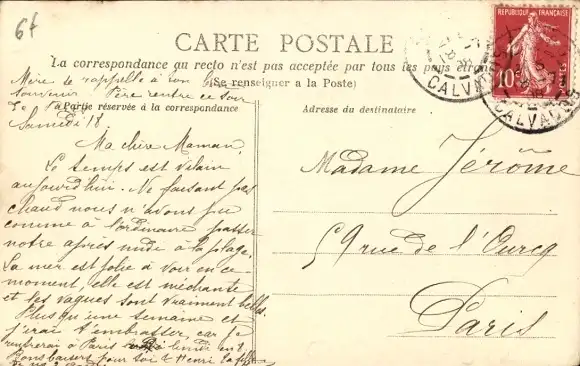 6f
CARTE POSTALE
La correspondance au recto n'est pas acceptée par tous les pays
(Se renseigner a la Poste)
Partie réservée à la correspondance
Adresse du destinataire
REPUBLIQUE FRANÇAISE
10
POSTES
CALVADOS
CALVADOS
Mère se rappelle à ton bon
souvenir Père rentre ce soir
Samedi 18
Ma chère Maman,
Le temps est vilain
aujourd'hui. Ne faisant pas
chaud nous n'avons pu
comme à l'ordinaire passer
notre après midi à la plage.
La mer est jolie à voir en ce
moment, elle est méchante
et les vagues sont vraiment belles.
Plus qu'une semaine et
j'irai t'embrasser, car je
rentrerai à Paris
Bons baisers pour toi et Henri
Madame Jérôme
59 rue de l'Ourcq
Paris